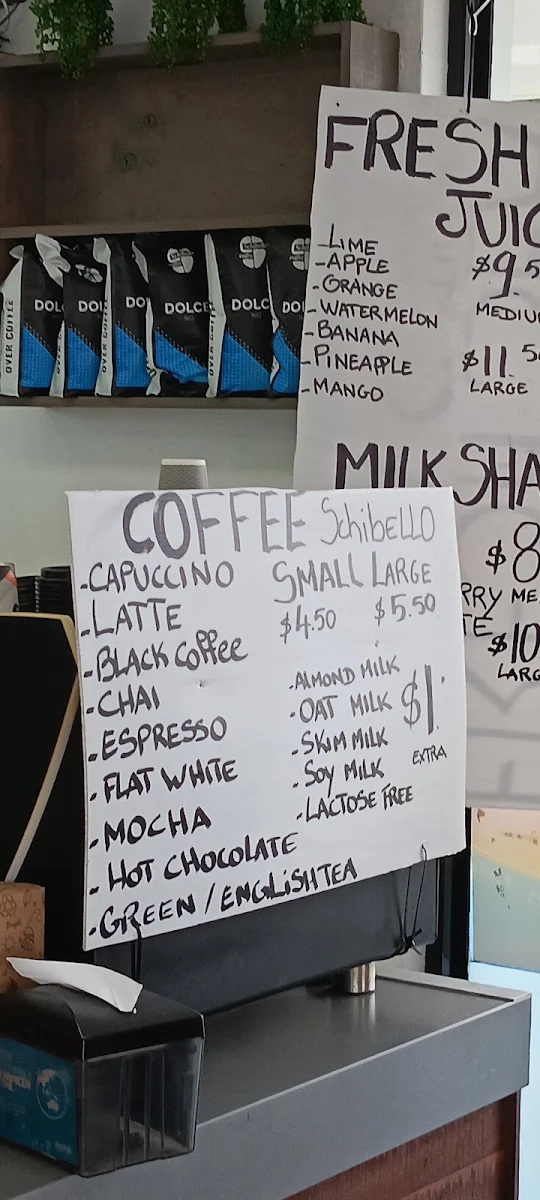 FRESH
JUIC
-LIME
-APPLE
-ORANGE
-WATERMELON
-BANANA
-PINEAPPLE
-MANGO
$9.5
MEDIU
$11.50
LARGE
MILKSHA
$8
RRY ME
TE $10
LARG
OVER COFFEE
DOLCE
DOLC
COFFEE Schibello
-CAPUCCINO
-LATTE
-BLACK Coffee
-CHAI
-ESPRESSO
-FLAT WHITE
-MOCHA
-HOT CHOCOLATE
-GREEN / ENGLISH TEA
SMALL LARGE
$4.50 $5.50
-ALMOND MILK
-OAT MILK
-SKIM MILK
-SOY MILK
-LACTOSE FREE
$1.
EXTRA